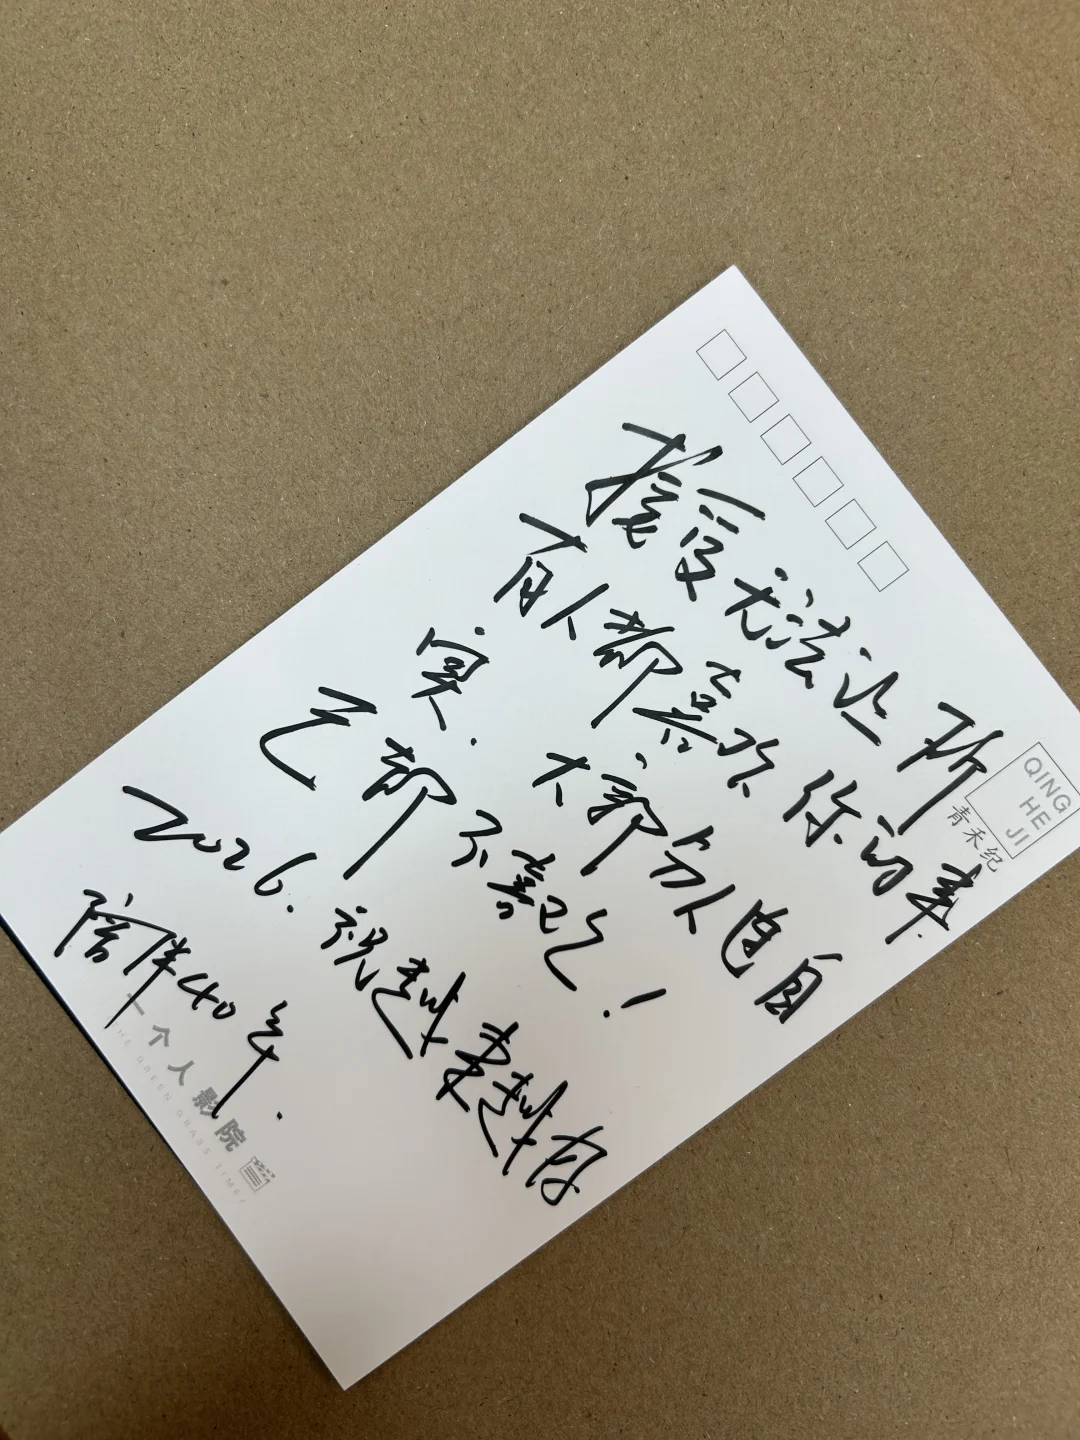 接受无法让所
有人都喜欢你的事
实. 大部分人自己
己都不喜欢!
2026. 祝越来越好
陪伴40年.
QING
HE
JI
青禾纪
一个人影院
THE GREEN GRASS TIMES